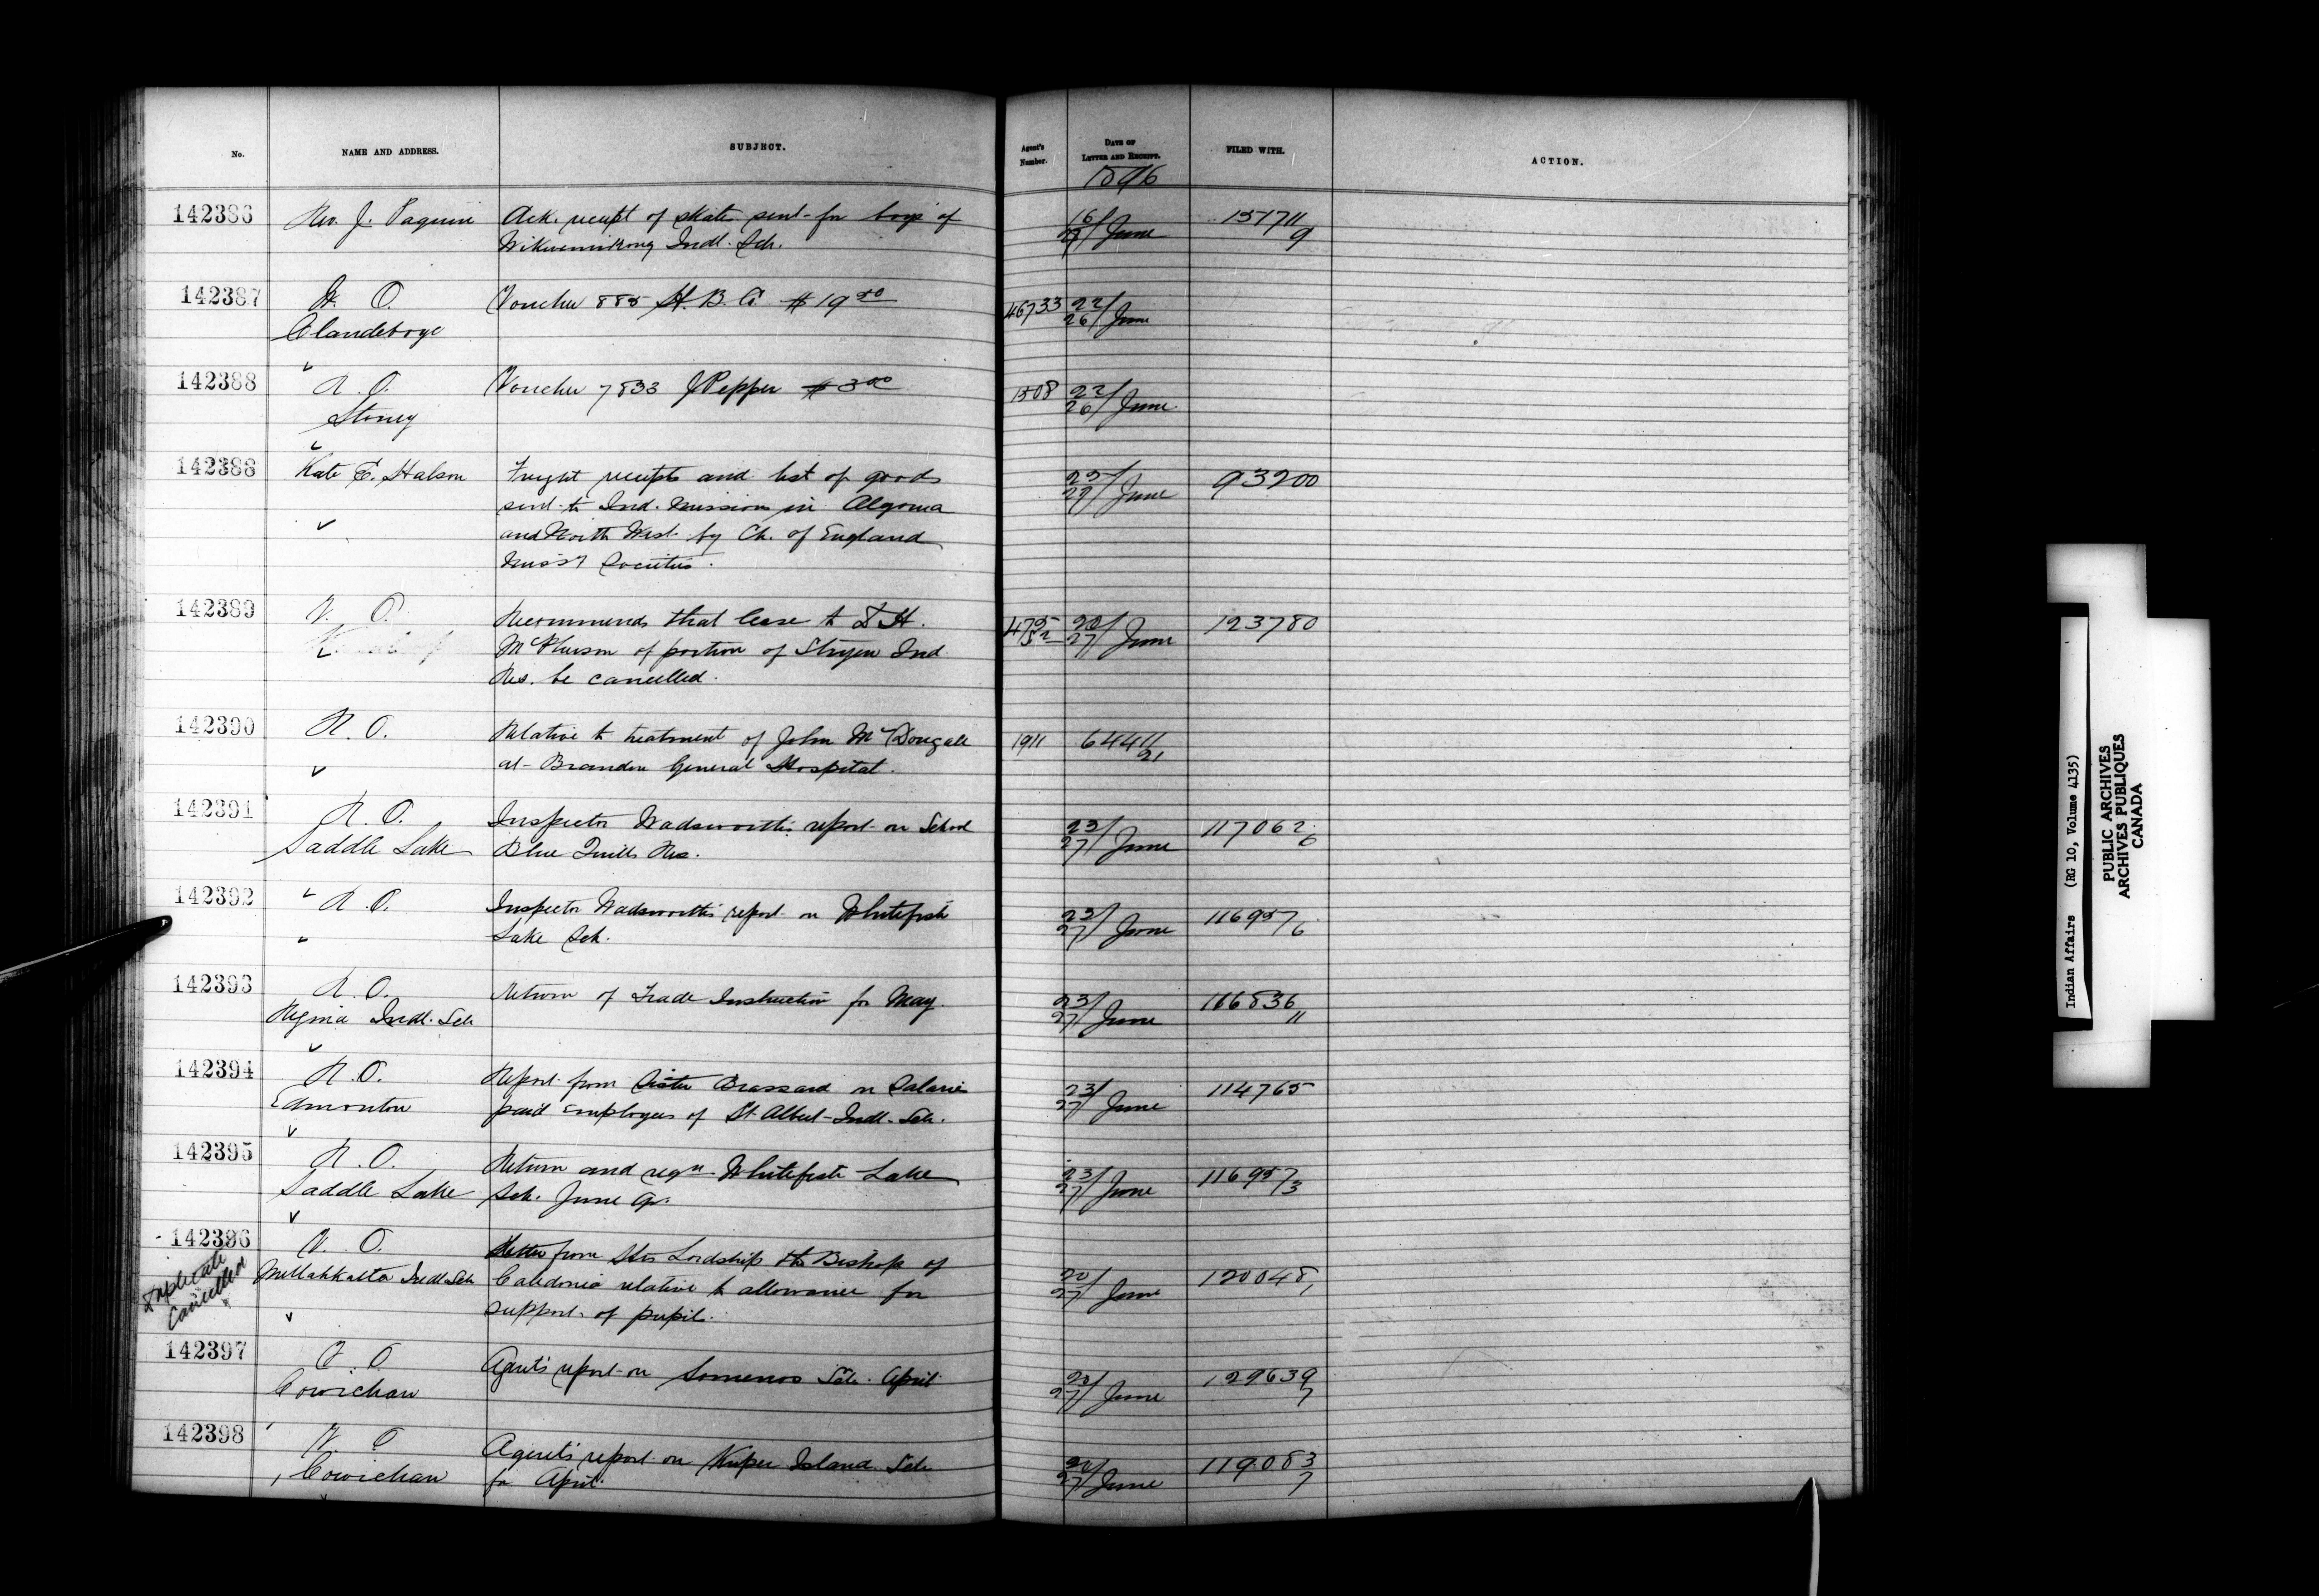 No.
NAME AND ADDRESS.
SUBJECT.
Agent's Number.
DATE OF LETTER AND RECEIPT.
FILED WITH.
ACTION.
1896
142386 Rev. J. Paquin Ack. receipt of skates sent for boys of 16/27 June 131711/9
Wikwemikong Indl. Sch.
142387 W. O. Voucher 885 H. B. Co $19.50 46733 22/26 June
Clandeboye
142388 R. O. Voucher 7833 J Pepper $3.00 1508 22/26 June
Stoney
142388 Kate E. Halson Freight receipts and list of goods 25/29 June 93200
sent to Ind. Missions in Algoma
and North West by Ch. of England
Missy Societies.
142389 V. O. Recommends that lease to D H. 475/52 20/27 June 123780
McPherson of portion of Stryen Ind
Res. be cancelled.
142390 R. O. Relative to treatment of John McDougall 1911 64411/21
at Brandon General Hospital.
142391 R. O. Inspector Wadsworth's report on School 23/27 June 117062/6
Saddle Lake Blue Quills Res.
142392 R. O. Inspector Wadsworth's report on Whitefish 23/27 June 116957/6
" Lake Sch.
142393 R. O. Return of Trade Instruction for May. 23/27 June 116836/11
Regina Indl. Sch
142394 R. O. Report from Sister Brassard on Salaries 23/27 June 114765
Edmonton paid employees of St Albert Indl. Sch.
142395 R. O. Return and reqn. Whitefish Lake 23/27 June 116957/3
Saddle Lake Sch. June qr.
142396 V. O. Letter from His Lordship the Bishop of
Duplicate Cancelled
Metlakatla Indl. Sch Caledonia relative to allowance for 20/27 June 120048/1
support of pupil.
142397 V. O. Agent's report on Somenos Sch. April 20/27 June 129639/7
Cowichan
142398 V. O Agent's report on Kuper Island Sch 20/27 June 119083/7
Cowichan for April.
Indian Affairs (RG 10, Volume 4135)
PUBLIC ARCHIVES
ARCHIVES PUBLIQUES
CANADA